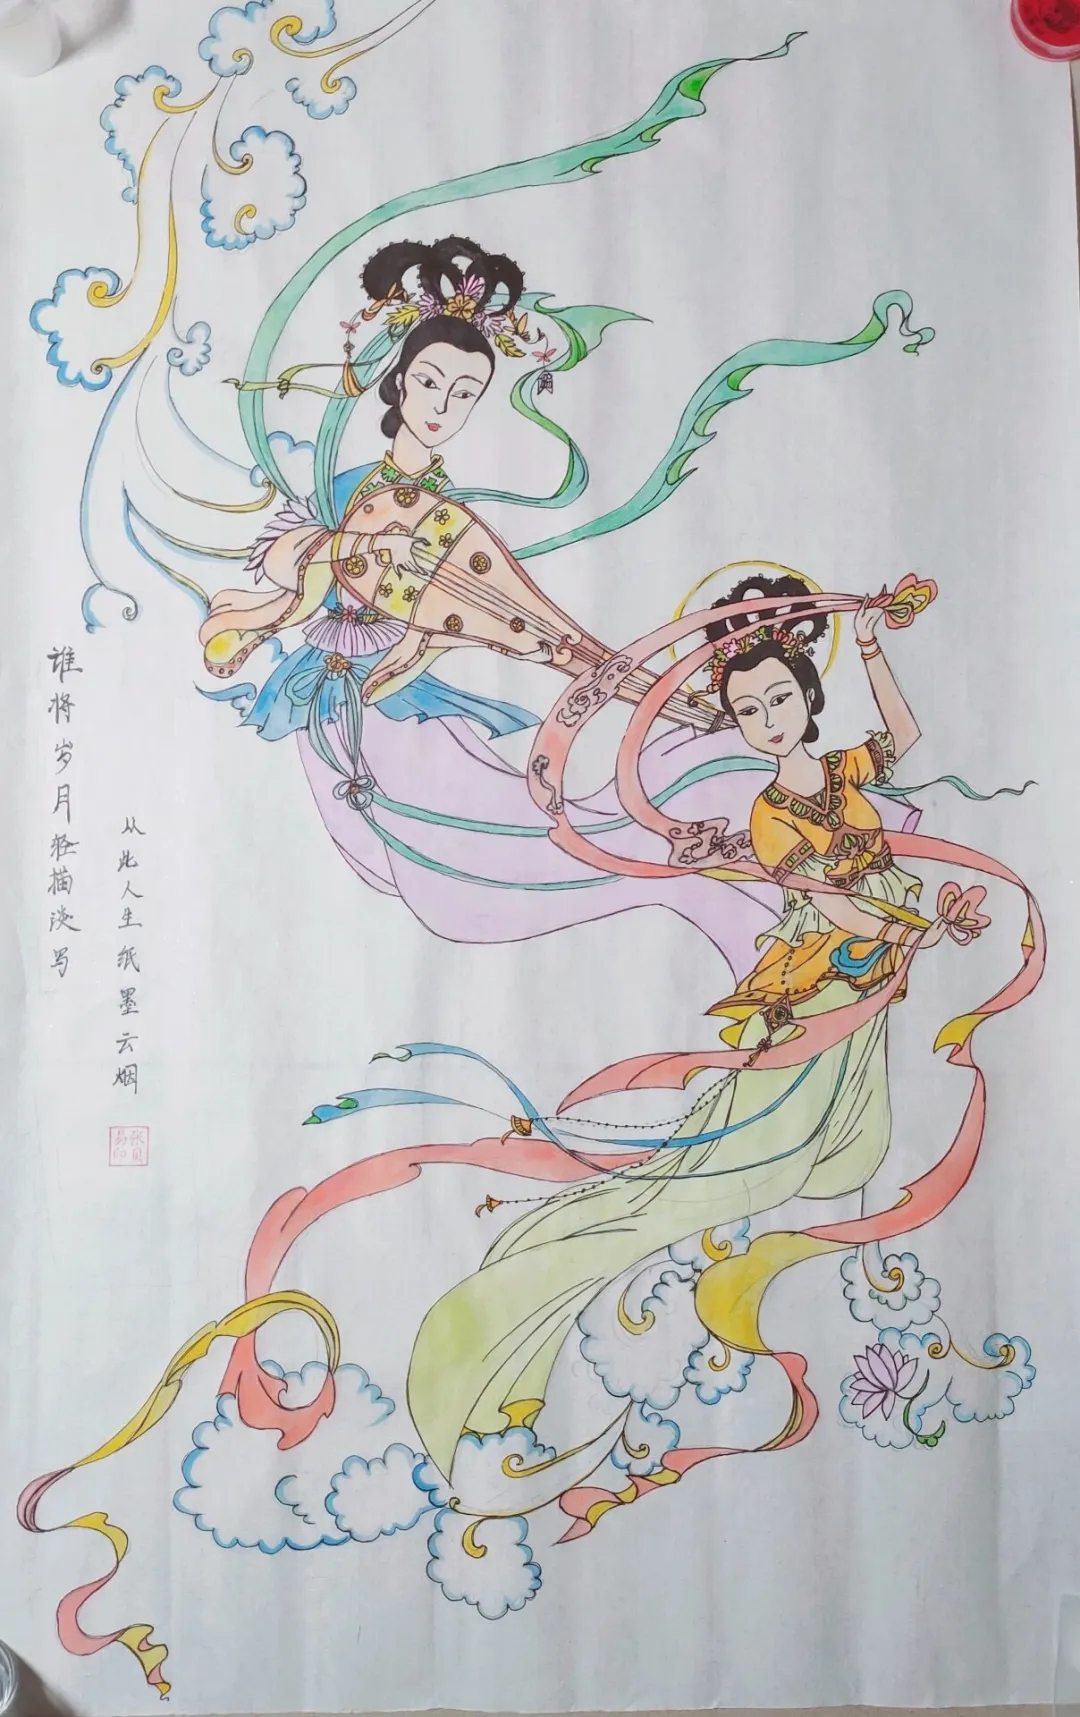 谁将岁月轻描淡写
从此人生纸墨云烟
张贝易印